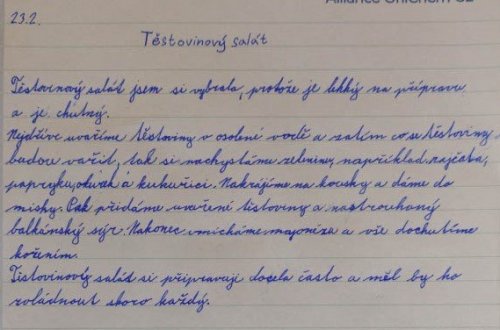 Alliance Unichem CZ
23.2.
Těstovinový salát
Těstovinový salát jsem si vybrala, protože je lehký na přípravu
a je chutný.
Nejdříve uvaříme těstoviny v osolené vodě a zatím co se těstoviny
budou vařit, tak si nachystáme zeleninu, například rajčata,
papryku, okurku a kukuřici. Nakrájíme na kousky a dáme do
misky. Pak přidáme uvařené těstoviny a nastrouhaný
balkánský sýr. Nakonec vmícháme majonézu a vše dochutíme
kořením.
Těstovinový salát si připravuji docela často a měl by ho
zvládnout skoro každý.